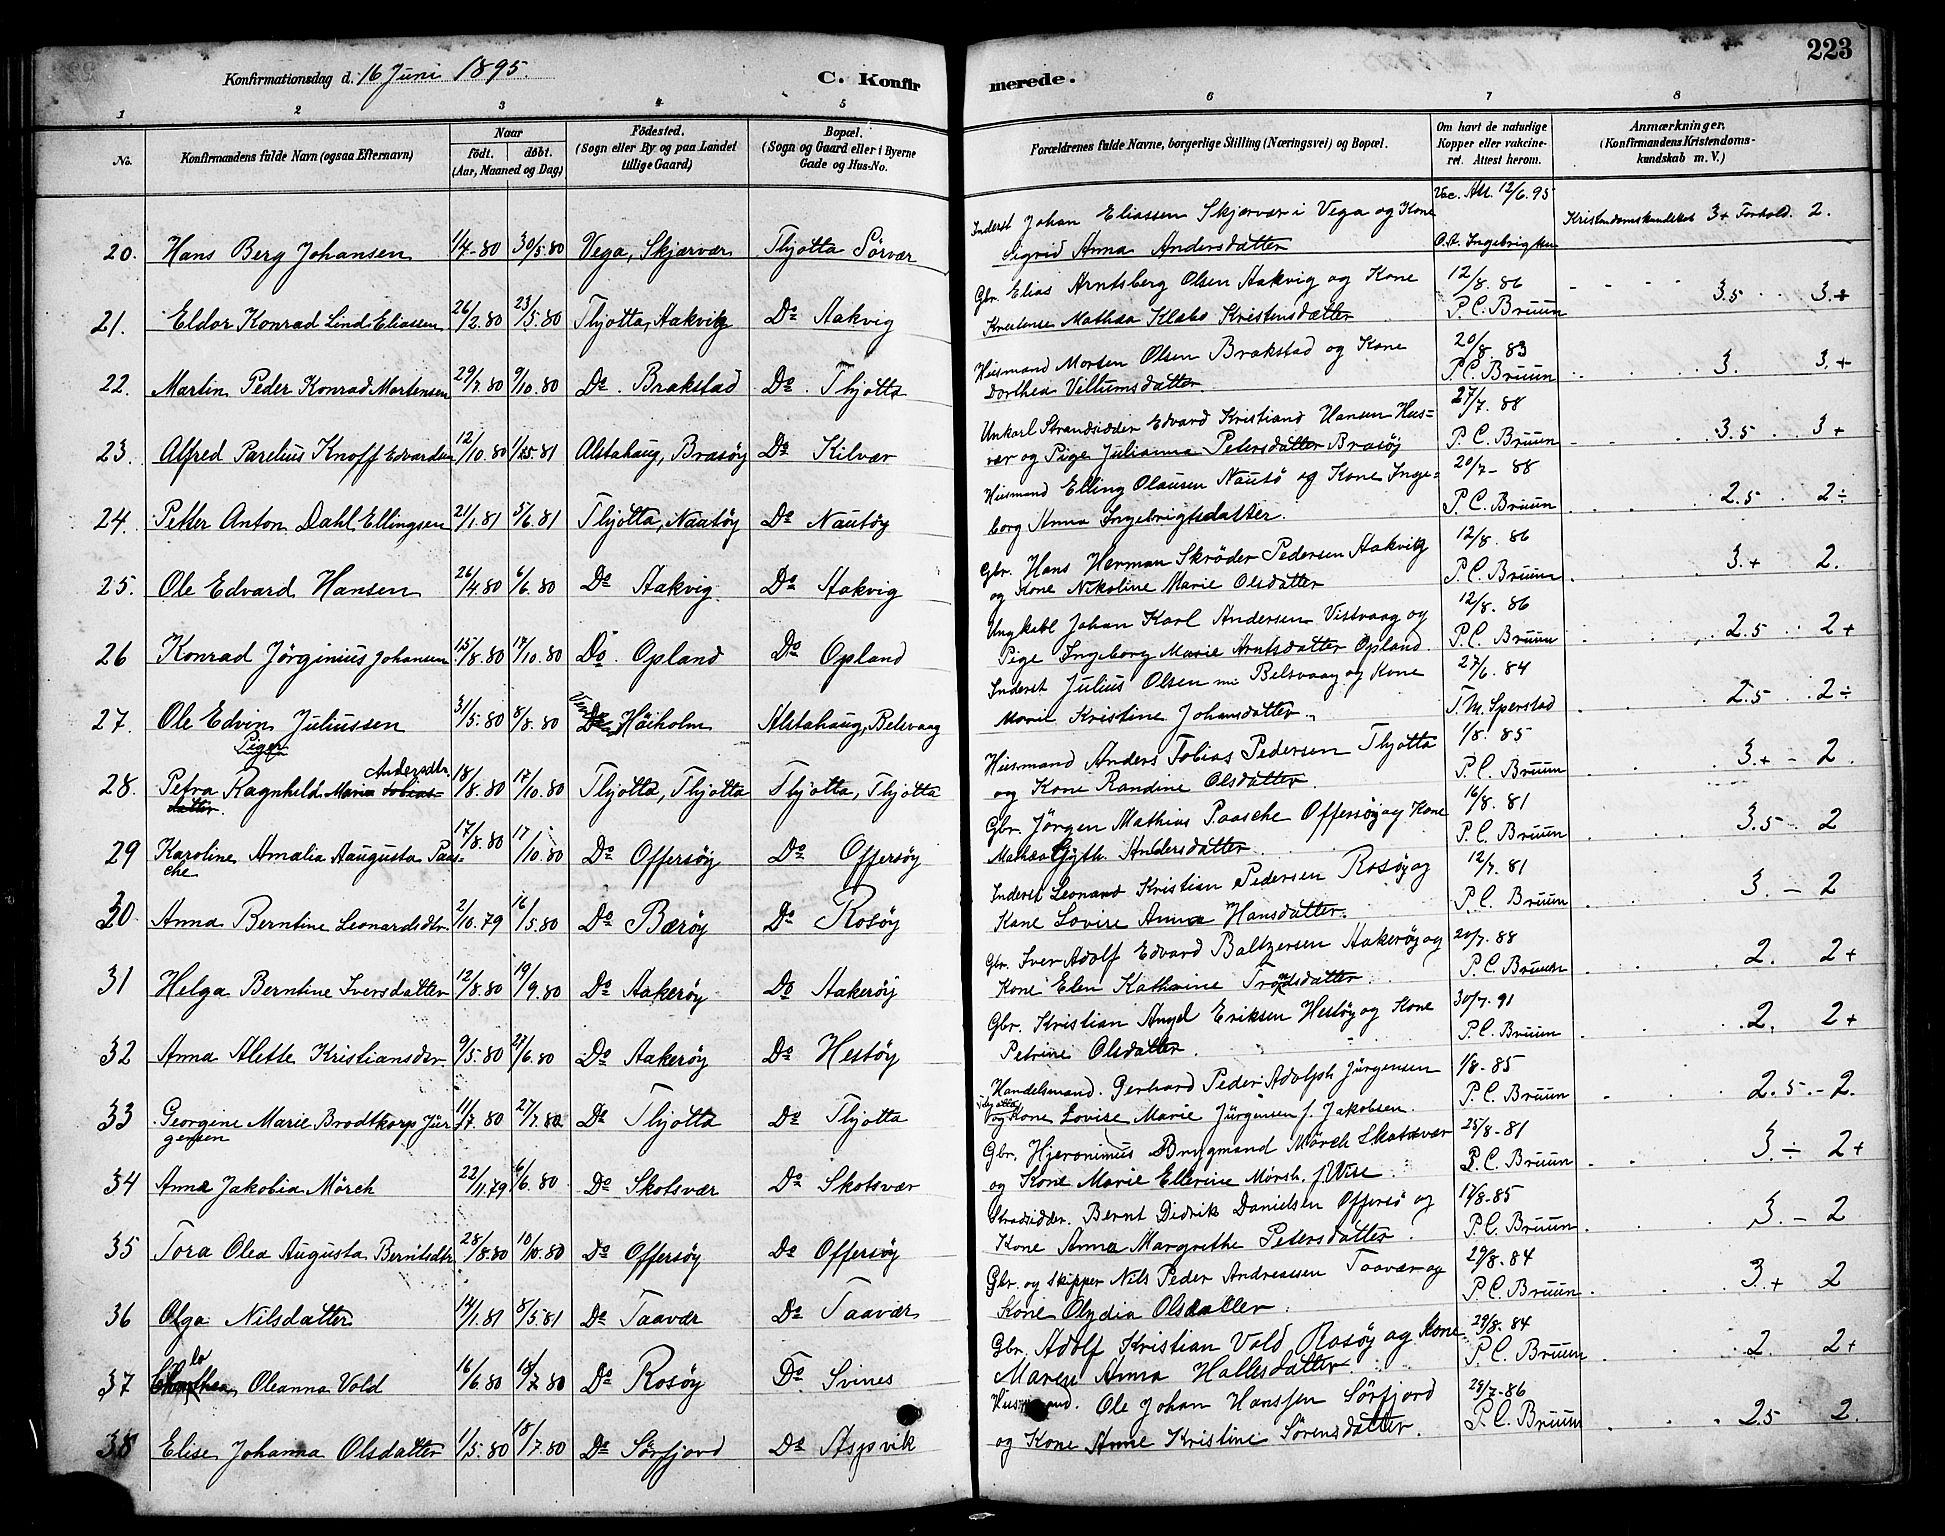 223
Konfirmationsdag d. 16 Juni 1895.
C. Konfirmerede.
1 2 3 4 5 6 7 8
No.
Konfirmandens fulde Navn (ogsaa Efternavn)
Naar
født. døbt.
(Aar, Maaned og Dag)
Fødested.
(Sogn eller By og paa Landet
tillige Gaard)
Bopæl.
(Sogn og Gaard eller i Byerne
Gade og Hus-No.
Forældrenes fulde Navne, borgerlige Stilling (Næringsvei) og Bopæl.
Om havt de naturlige
Kopper eller vakcine-
ret. Attest herom.
Anmærkninger.
(Konfirmandens Kristendoms-
kundskab m. V.)
Inderst Johan Eliassen Skjærvær i Vega og Kone Vac. Att. 12/6.95 Kristendomskundskab 3+ Forhold. 2.
20. Hans Berg Johansen 1/4-80 30/5.80 Vega, Skjærvær Thjøtta Sørvær Sigrid Anna Andersdatter
Gbr. Elias Arntsberg Olsen Aakvig og Kone 12/8.86 3.5 3.+
21. Eldor Konrad Lind Eliassen 26/2.80 23/5.80 Thjøtta, Aakvig Do Aakvig Mathea Klabo Kristensdatter P. C. Bruun
Husmand Morten Olsen Brakstad og Kone 20/8.83 3. 3.+
22. Martin Peder Konrad Mortensen 29/7.80 9/10.80 Do. Brakstad Do. Thjøtta Dorthea Villumsdatter P. C. Bruun
Unkarl Strandsidder Edvard Kristiand Hansen Hus= 27/7.88 3.5 3+
23. Alfred Parelius Knoff Edvardsen 12/10.80 81 Alstahaug, Brasøy Do Kilvær vær og Pige Julianna Petersdatter Brasøy P. C. Bruun
Husmand Elling Olausen Nautø og Kone Inge= 20/7-88 2.5 2÷
24. Petter Anton Dahl Ellingsen 21/1.81 5/6.81 Thjøtta, Nautøy Do Nautøy borg Anna Ingebrigtsdatter. P. C. Bruun
Gbr. Hans Herman Skrøder Pedersen Aakvig 12/8.86 3.+ 2.
25. Ole Edvard Hansen 26/4.80 6/6.80 Do Aakvig Do Aakvig og Kone Nikoline Marie Olsdatter P. C. Bruun
Ungkarl Johan Karl Andersen Vistvaag og 12/8.86 2.5 2+
26 Konrad Jørginius Johansen 15/8.80 17/10.80 Do. Opland Do Opland Pige Ingeborg Marie Arntsdatter Opland. P. C. Bruun
Inderst Julius Olsen Belsvaag og Kone 27/6.84 2.5 2÷
27. Ole Edvin Juliussen 31/5.80 8/8.80 Høiholm Alstahaug, Belsvaag Marie Kristine Johansdatter. T. M. Sperstad
Piger
Husmand Anders Tobias Pedersen Thjøtta 1/8.85 3.+ - 2.
28. Petra Ragnhild Maria Tobiasdatter. Andersdtr. 18/8.80 17/10.80 Thjøtta, Thjøtta Thjøtta, Thjøtta og Kone Randine Olsdatter. P. C. Bruun
Gbr. Jørgen Mathias Paasche Offersøy og Kone 16/8.81 3.5 - 2
29 Karoline Amalia Augusta Paasche 17/8.80 17/10.80 Do Offersøy Do Offersøy Gjyth Andersdatter. P. C. Bruun
Inderst Leonard Kristian Pedersen Rosøy og 12/7.81 3. - 2
30. Anna Berntine Leonardsdtr. 2/10.79 16/5.80 Do Barøy Do Rosøy Kone Lovise Anna Hansdatter. P. C. Bruun
Gbr. Iver Adolf Edvard Baltzersen Aakerøy og 20/7.88 2. 2+
31 Helga Berntine Iversdatter 12/8.80 19/9.80 Do Aakerøy Do Aakerøy Kone Elen Kathrine P. C. Bruun
Gbr. Kristian Angel Eriksen Hestøy og Kone 30/7.91 2. 2+
32 Anna Alette Kristiansdtr. 9/5.80 27/6.80 Do Aakerøy Do Hestøy Petrine Olsdatter. P. C. Bruun
Handelsmand. Gerhard Peder Adolph Jürgensen 1/8-85 2.5.-2.
33 Georgine Marie Brodtkorp Jürgensen 11/7.80 27/7.80 Do Thjøtta Do Thjøtta Thjøtta og Kone Lovise Marie Jürgensen f. Jakobsen. P. C. Bruun
Gbr. Hjeronimus Brygmand Mörch Skotsvær 25/8-81 3.÷ 2+
34 Anna Jakobia Mörch 22/1.79 6/6.80 Do Skotsvær Do Skotsvær og Kone Marie Ellerine Mörch. f. Wise. P. C. Bruun
Strandsidder. Bernt Didrik Danielsen Offersø og 17/8-85 3.-2
35 Tora Olea Augusta Berntsdtr. 28/8.80 10/10.80 Do Offersøy Do Offersøy Kone Anna Margrethe Petersdatter. P. C. Bruun
Gbr. og skipper Nils Peder Andreassen Taavær og 29/8.84 3.+ 2
36 Olga Nilsdatter 14/1.81 8/5.81 Do Taavær Do Taavær Kone Olydia Olsdatter. P. C. Bruun
Gbr. Adolf Kristian Vold Rosøy og Kone 29/8.84 2. 2+
37 Oleanna Vold 16/6.80 18/7.80 Do Rosøy Do. Svines Maren Anna Hallesdatter. P. C. Bruun
Husmand. Ole Johan Hanssen Sørfjord 28/7-86 2.5 2.
38 Elise Johanna Olsdatter 1/5.80 18/7.80 Do Sørfjord Do Aspvik og Kone Anne Kristine Sørensdatter. P. C. Bruun